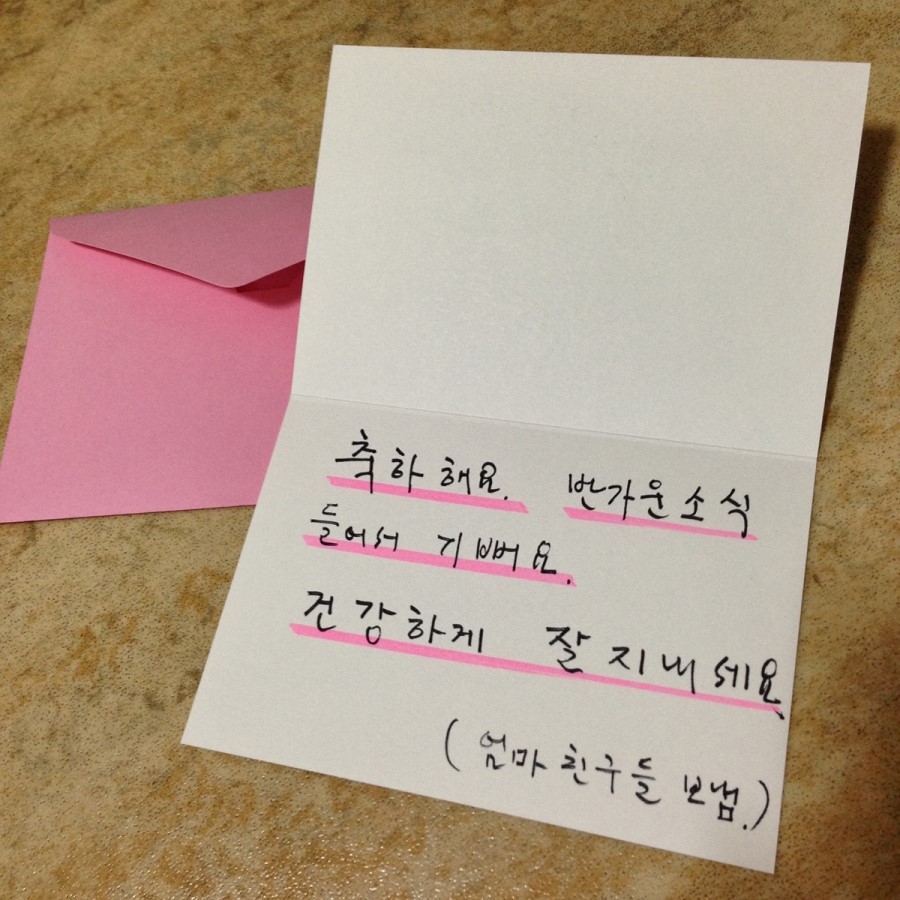 축하해요. 반가운소식
들어서 기뻐요.
건강하게 잘 지내세요.
(엄마 친구들 보냄.)